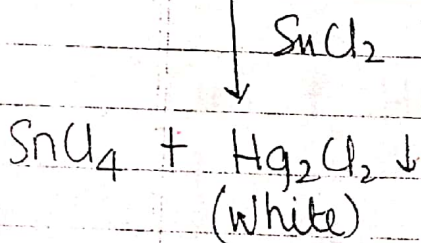 SnCl2
SnCl4 + Hg2Cl2 ↓
(White)